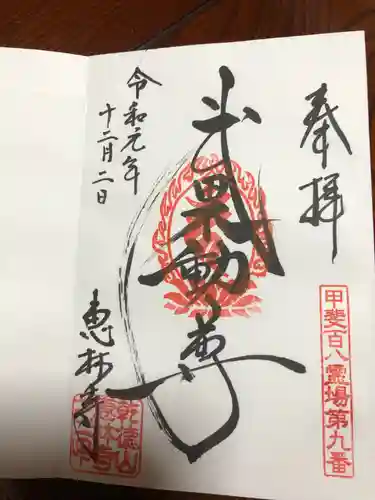 奉拝
甲斐百八霊場第九番
武田不動尊
令和元年
十二月二日
恵林寺
乾徳山